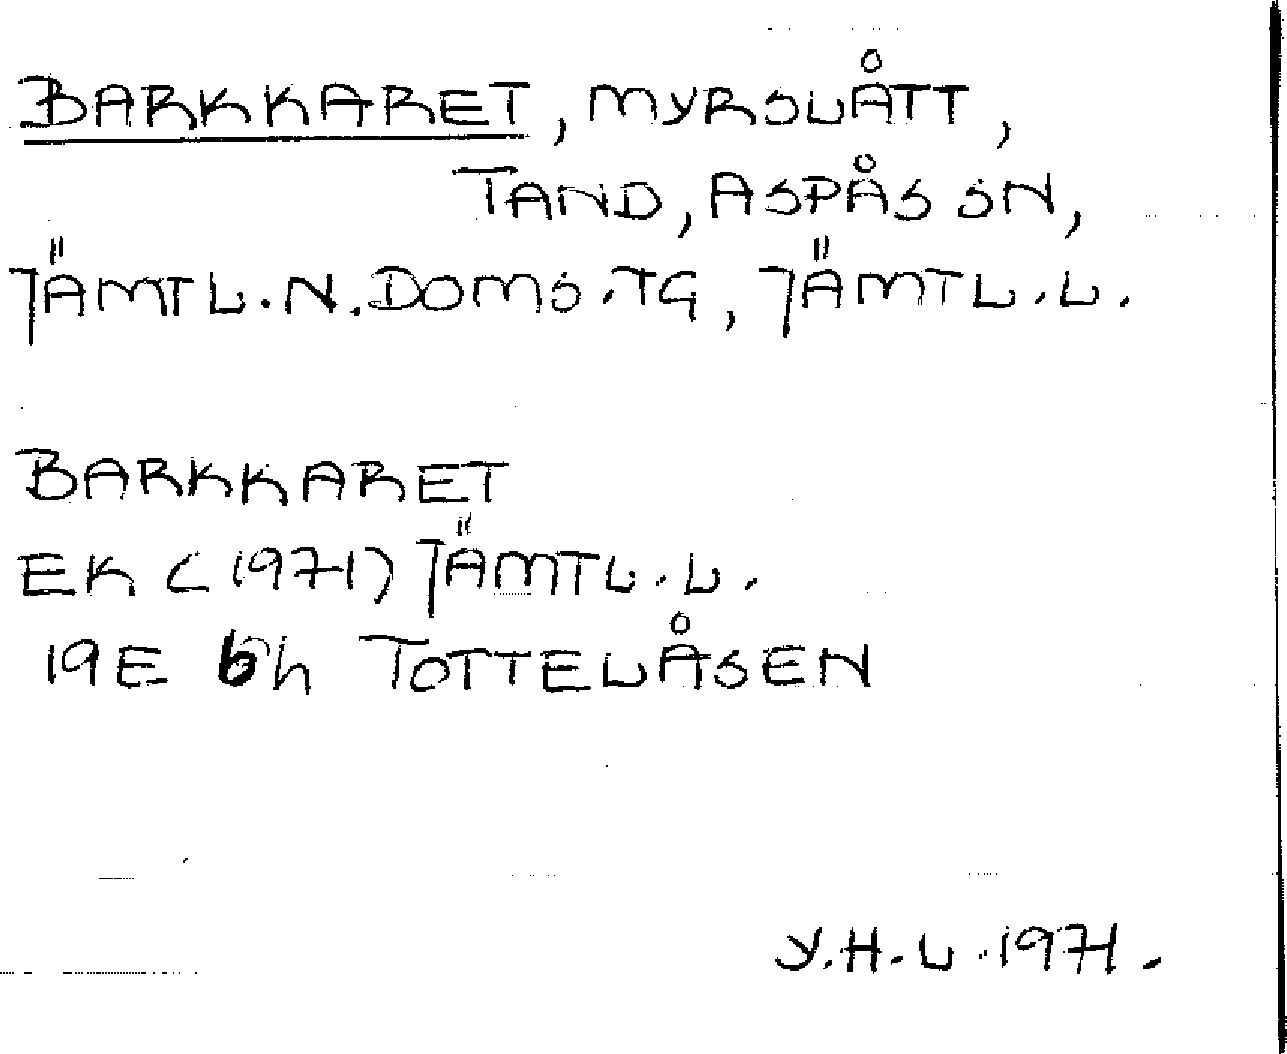 BARKKARET, MYRSLÅTT,
TAND, ASPÅS SN,
JÄMTL.N.DOMS.TG, JÄMTL.L.
BARKKARET
EK (1971) JÄMTL.L.
19E 6h TOTTELÅSEN
Y.H.L.1971.